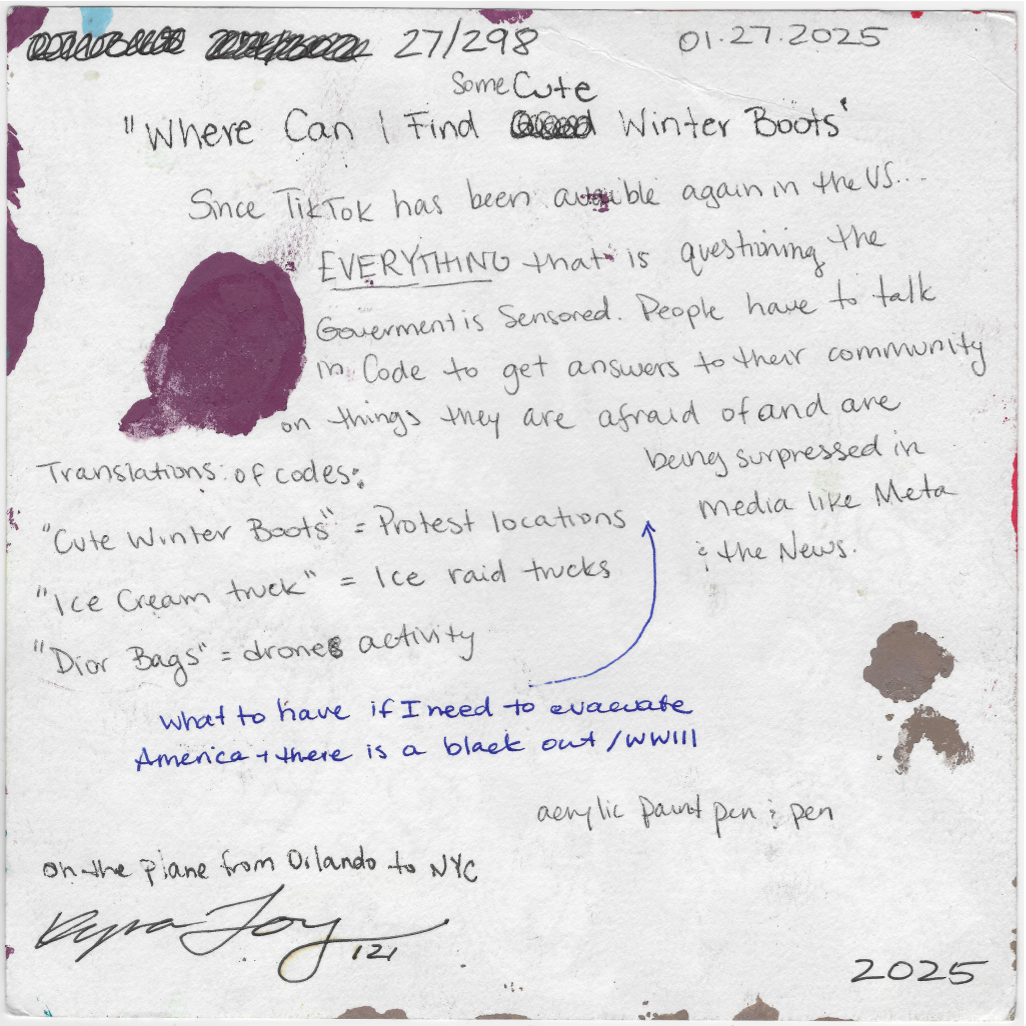 27/298 01.27.2025
Some Cute
"Where Can I Find Winter Boots"
Since TikTok has been available again in the US...
EVERYTHING that is questioning the
Goverment is Sensored. People have to talk
in Code to get answers to their community
on things they are afraid of and are
being surpressed in
media like Meta
& the News.
Translations of codes:
"Cute Winter Boots" = Protest locations
"Ice Cream truck" = Ice raid trucks
"Dior Bags" = drones activity
what to have if I need to evacuate
America + there is a black out / WWIII
acrylic paint pen & pen
on the plane from Orlando to NYC
121
2025